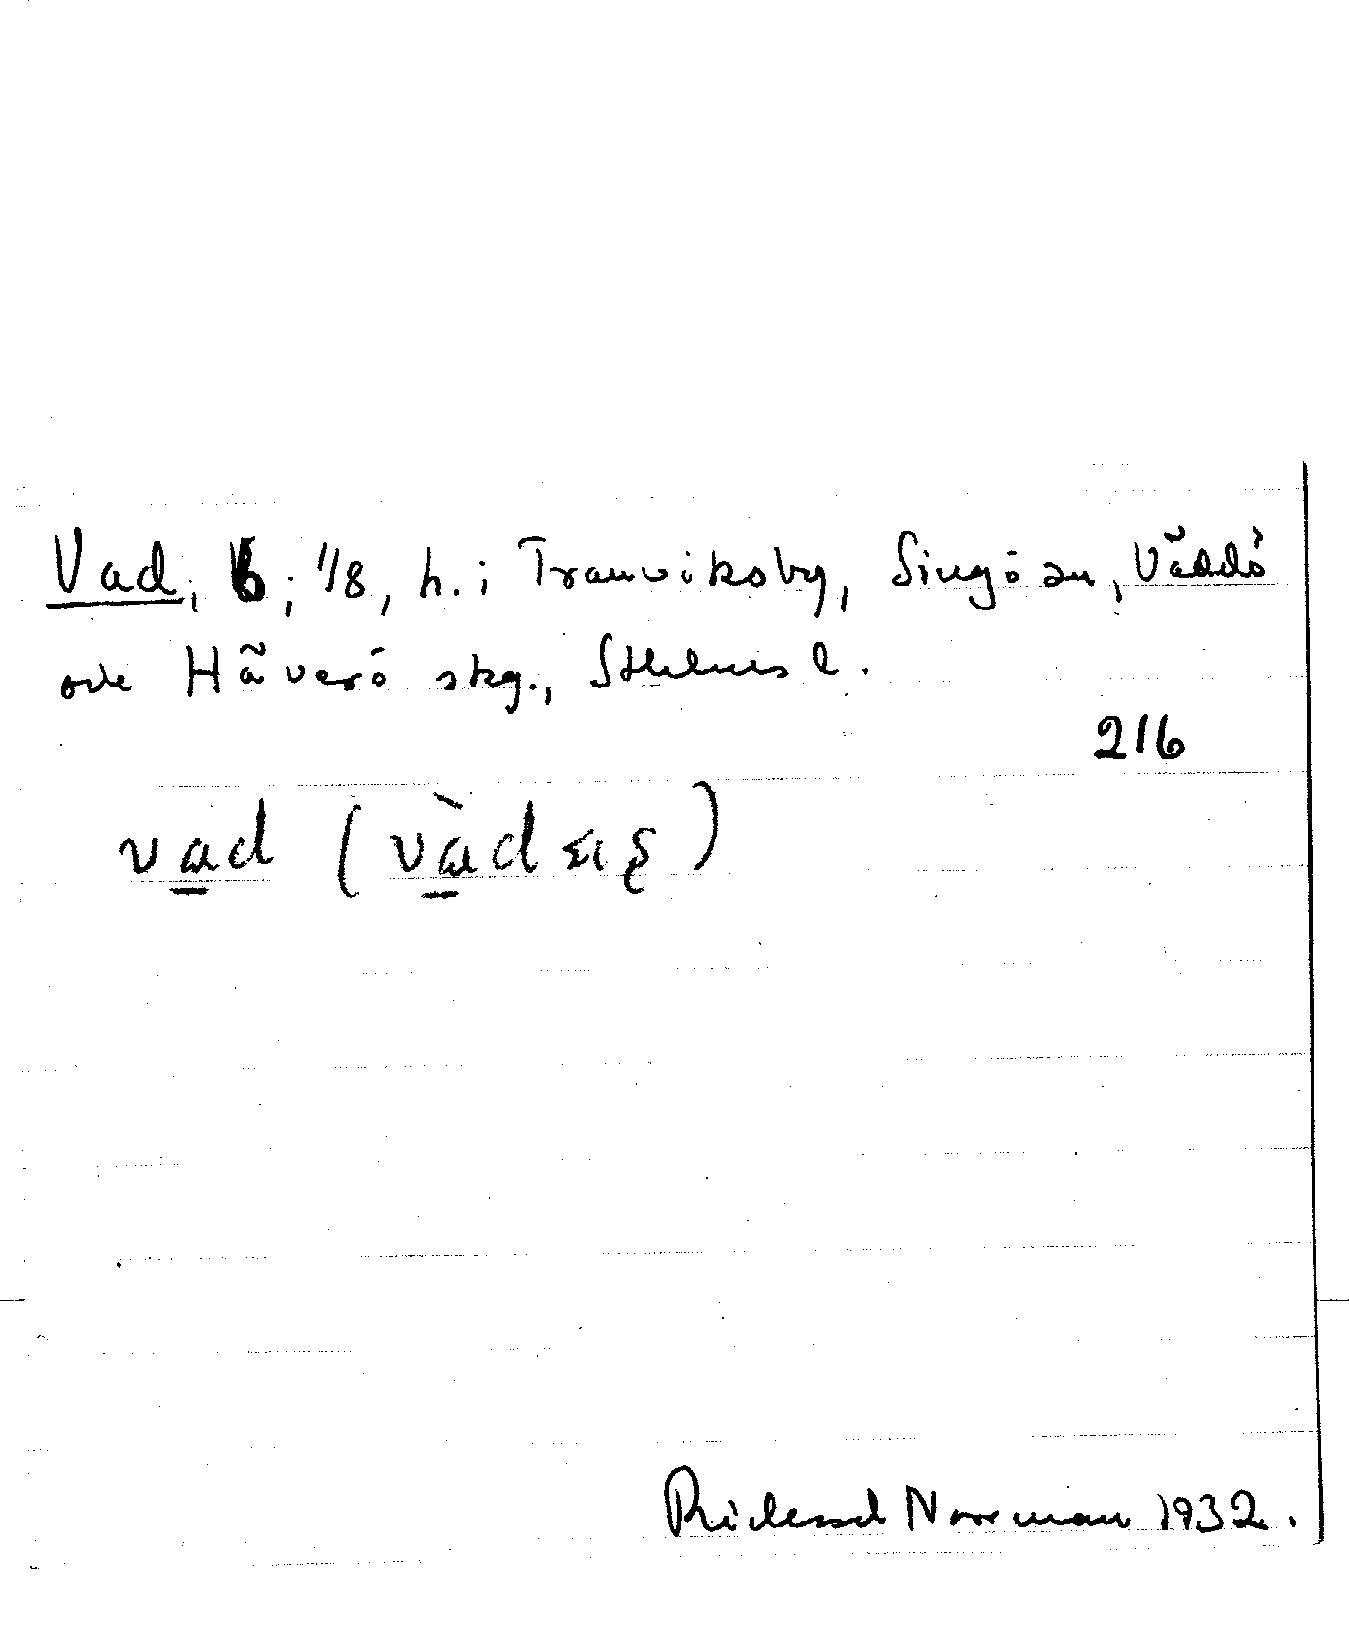 Vad, 6; 1/8, h. i Tranviksby, Singö sn, Väddö
och Häverö skg., Sthlms l.
216
vad (vàd
Richard Norrman 1932.